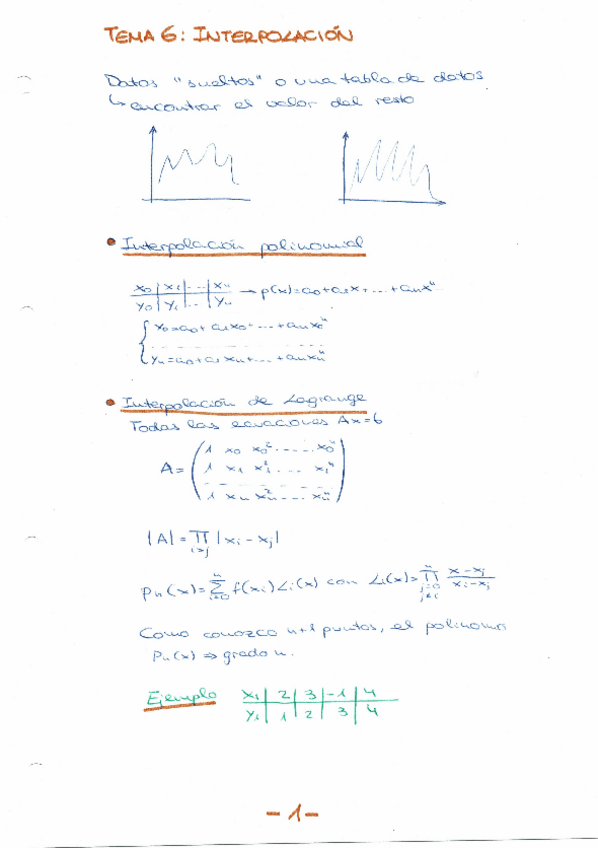 TEMA 6: INTERPOLACIÓN
Datos "sueltos" o una tabla de datos
↳ encontrar el valor del resto
• Interpolación polinomial
x₀ | x₁ | ... | xₙ
y₀ | y₁ | ... | yₙ → p(x)=a₀+a₁x+...+aₙxⁿ
{ y₀=a₀+a₁x₀+...+aₙx₀ⁿ
yₙ=a₀+a₁xₙ+...+aₙxₙⁿ
• Interpolación de Lagrange
Todas las ecuaciones Ax=b
1 x₀ x₀² ..... x₀ⁿ
A= 1 x₁ x₁² .... x₁ⁿ
1 xₙ xₙ² ... xₙⁿ
|A| = ∏ i>j |xᵢ - xⱼ|
pₙ(x)= ∑ i=0 n f(xᵢ)Lᵢ(x) con Lᵢ(x)= ∏ j=0 j≠i n (x-xⱼ)/(xᵢ-xⱼ)
Como conozco n+1 puntos, el polinomio
Pₙ(x) ⇒ grado n.
Ejemplo xᵢ | 2 | 3 | -1 | 4
yᵢ | 1 | 2 | 3 | 4
- 1 -